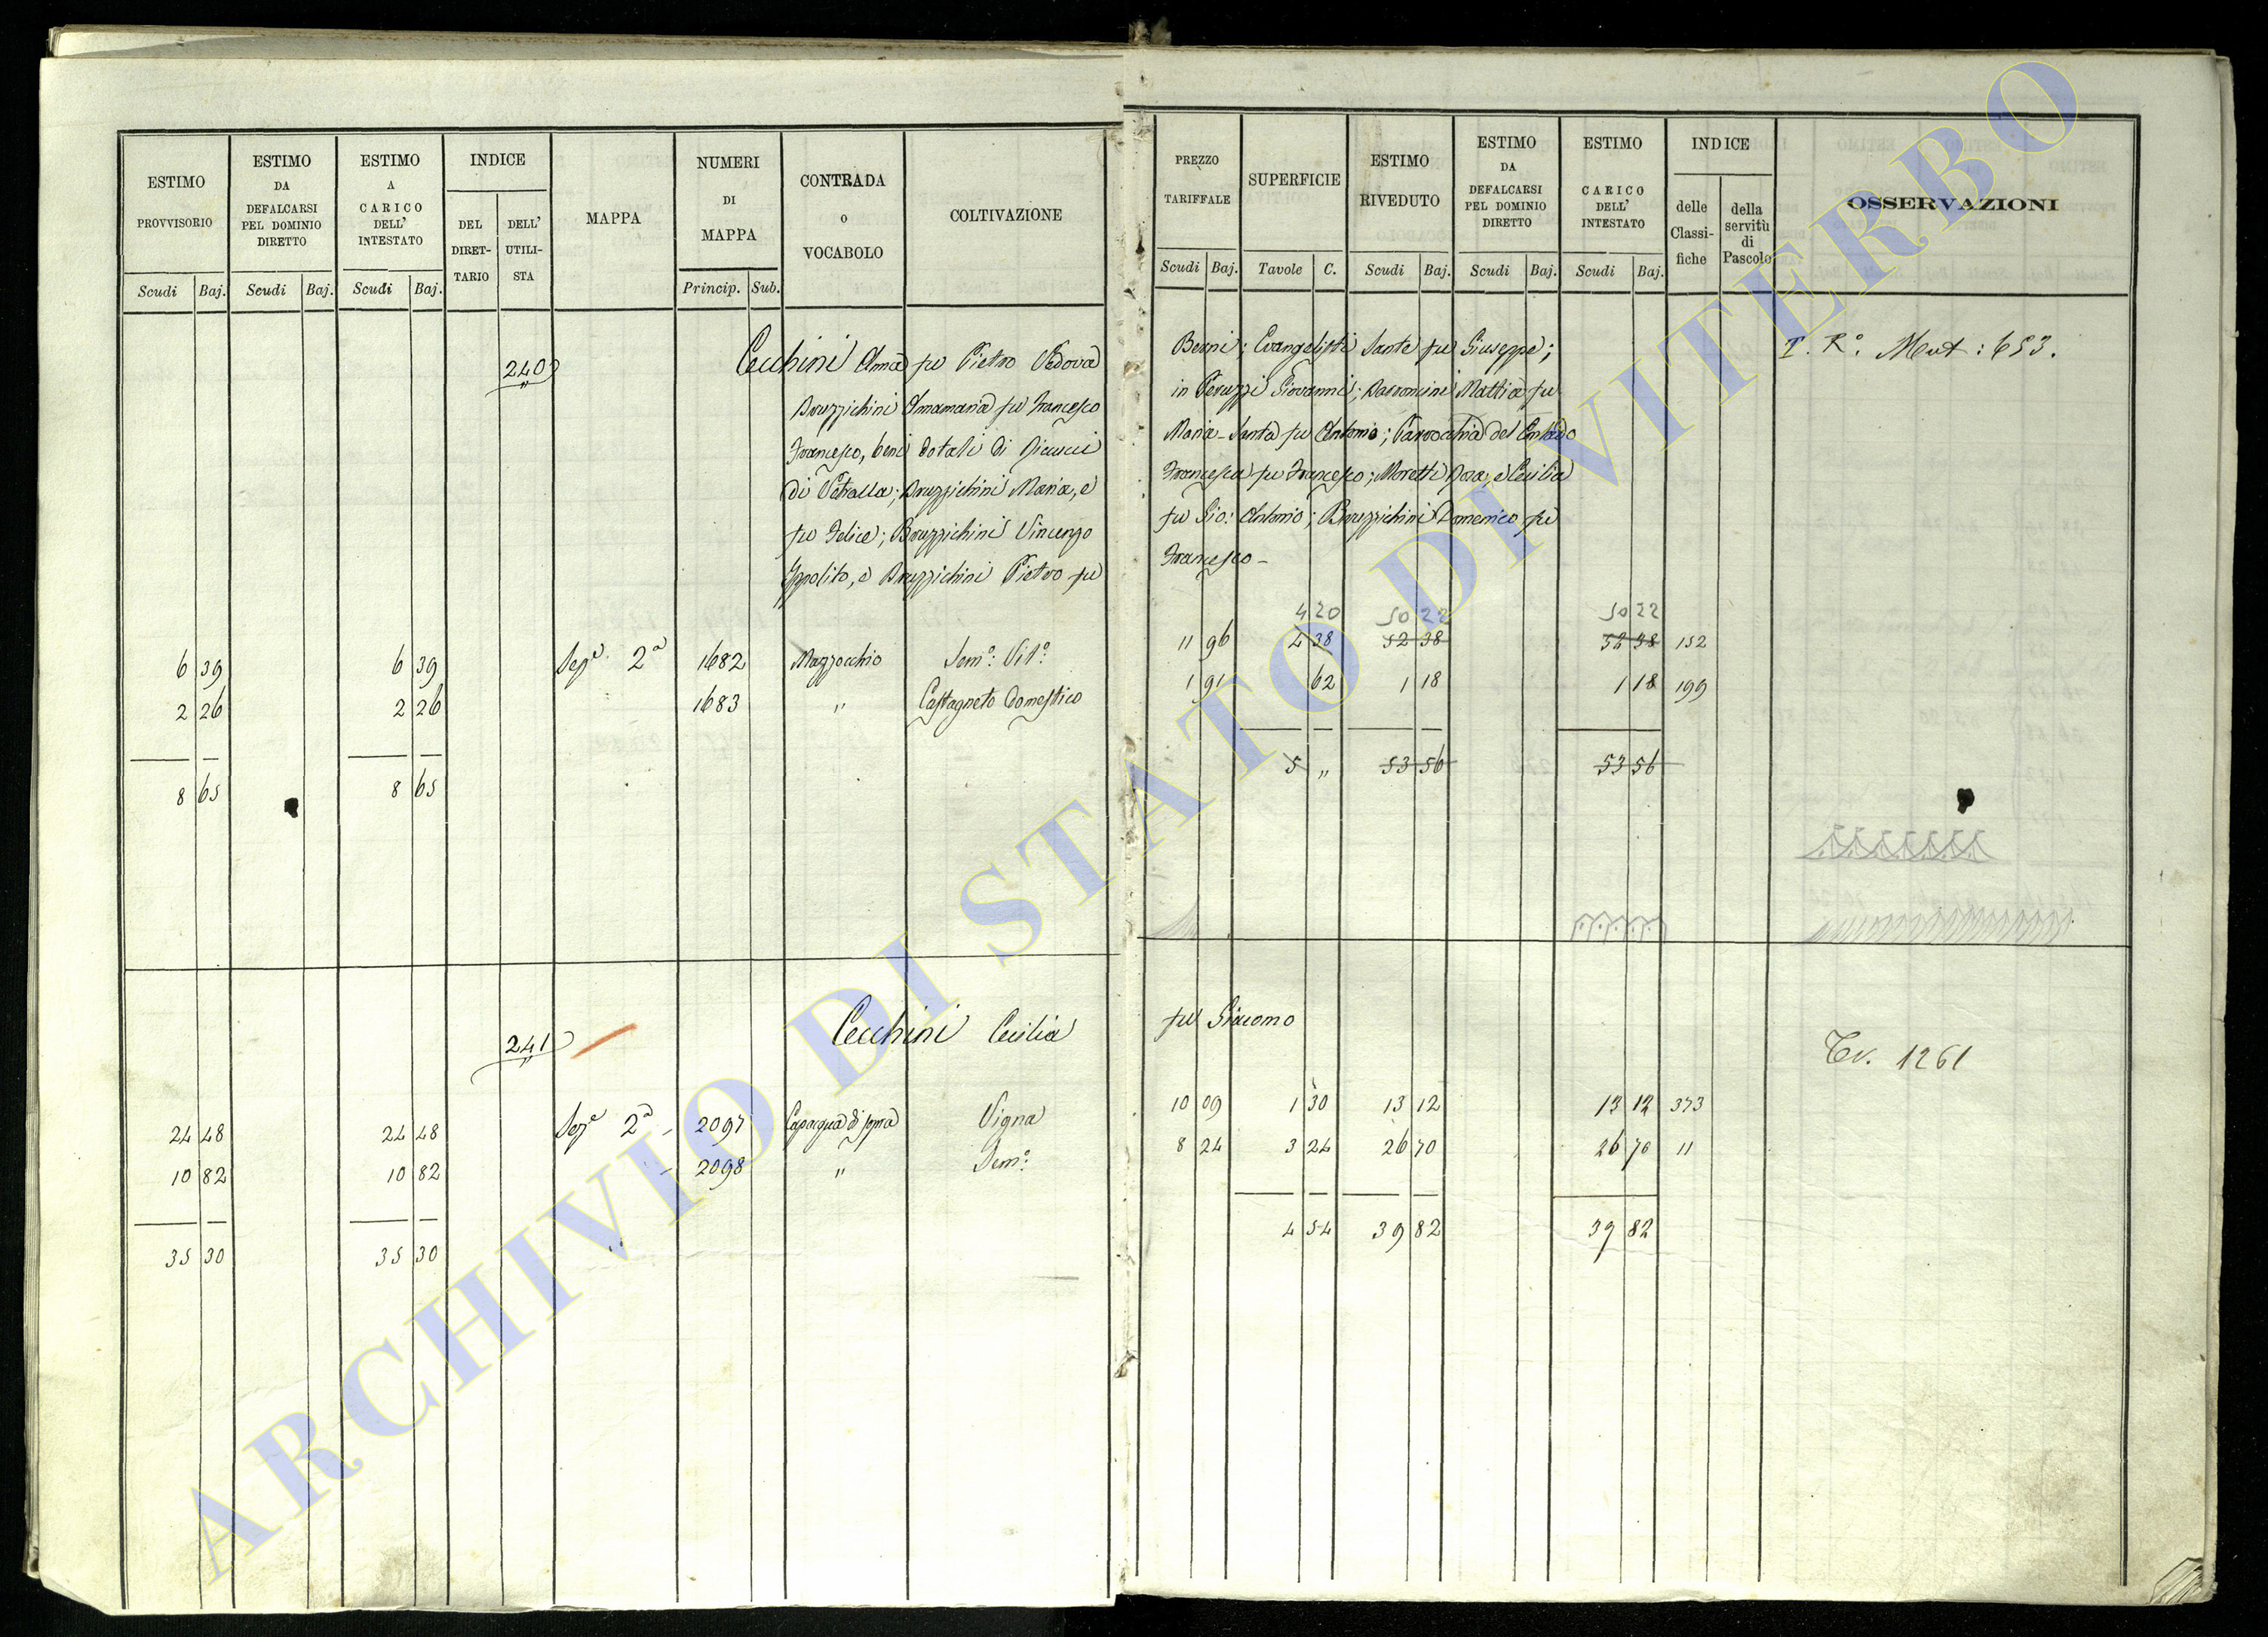 ESTIMO PROVVISORIO
ESTIMO DA DEFALCARSI PEL DOMINIO DIRETTO
ESTIMO A CARICO DELL' INTESTATO
INDICE
DEL DIRET-TARIO
DELL' UTILI-STA
MAPPA
NUMERI DI MAPPA
CONTRADA o VOCABOLO
COLTIVAZIONE
Scudi Baj. Scudi Baj. Scudi Baj. Princip. Sub.
PREZZO TARIFFALE
SUPERFICIE
ESTIMO RIVEDUTO
ESTIMO DA DEFALCARSI PEL DOMINIO DIRETTO
ESTIMO CARICO DELL' INTESTATO
INDICE
delle Classi-fiche
della servitù di Pascolo
OSSERVAZIONI
Scudi Baj. Tavole C. Scudi Baj. Scudi Baj. Scudi Baj.
240 Cecchini Anna fu Pietro Vedova Berni; Evangelisti Sante fu Giuseppe; T. R.º Mut: 653.
Bruzzichini Annamaria fu Francesco in Peruzzi Giovanni; Mattia fu
Francesco, beni dotali di Maria Santa fu Antonio; Parrocchia del
di Vetralla; Bruzzichini Maria, e Francesca fu Francesco; Moretti Rosa, e Cecilia
fu Felice; Bruzzichini Vincenzo fu Gio: Antonio; Bruzzichini Domenico fu
Ippolito, e Bruzzichini Pietro fu Francesco -
4 20 50 22 50 22
6 39 6 39 Sez.e 2a 1682 Mazzocchio Sem.º Vit.º 11 96 4 38 52 38 52 38 152
2 26 2 26 1683 " Castagneto domestico 1 91 62 1 18 1 18 199
8 65 8 65 5 " 53 56 53 56
241 Cecchini Cecilia fu Giacomo Tv. 1261
24 48 24 48 Sez.e 2a 2097 Capacqua di sopra Vigna 10 09 1 30 13 12 13 12 373
10 82 10 82 2098 " Sem.º 8 24 3 24 26 70 26 70 11
35 30 35 30 4 54 39 82 39 82
ARCHIVIO DI STATO DI VITERBO